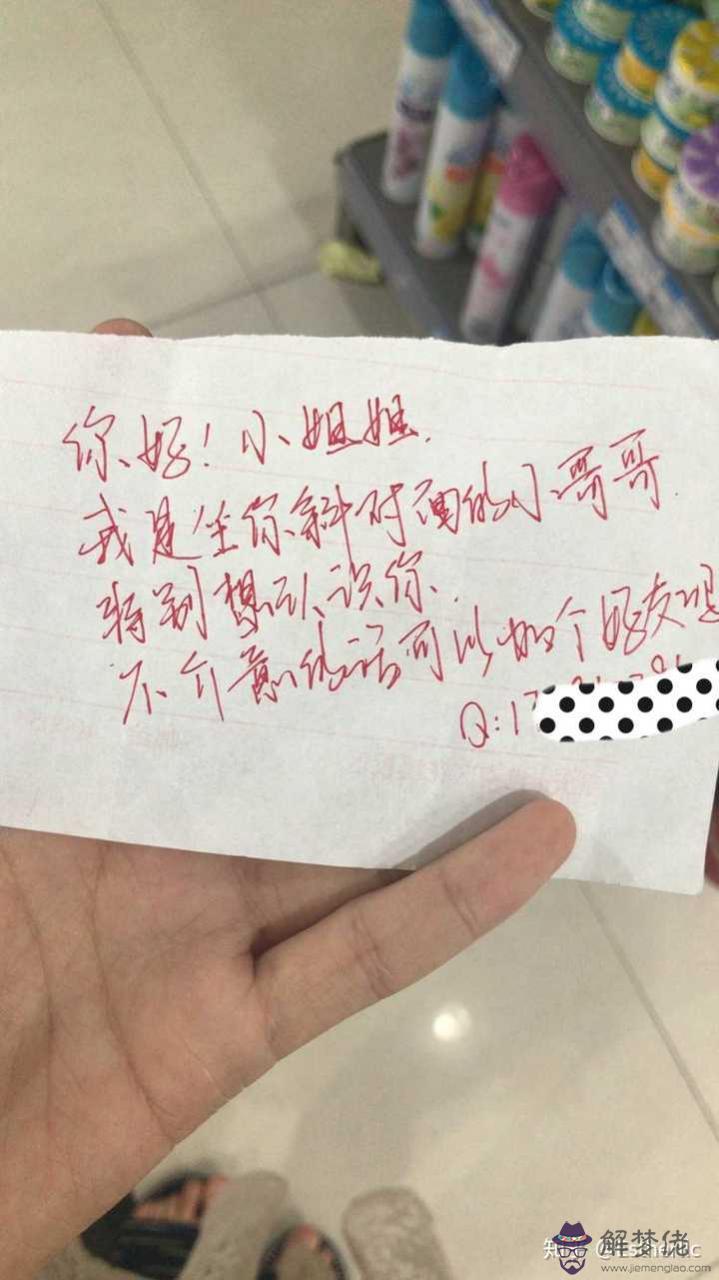 你好！小姐姐.
我是坐你斜对面的小哥哥.
特别想认识你.
不介意的话可以加个好友吧
Q:17
知乎
解梦佬
www.jiemenglao.com